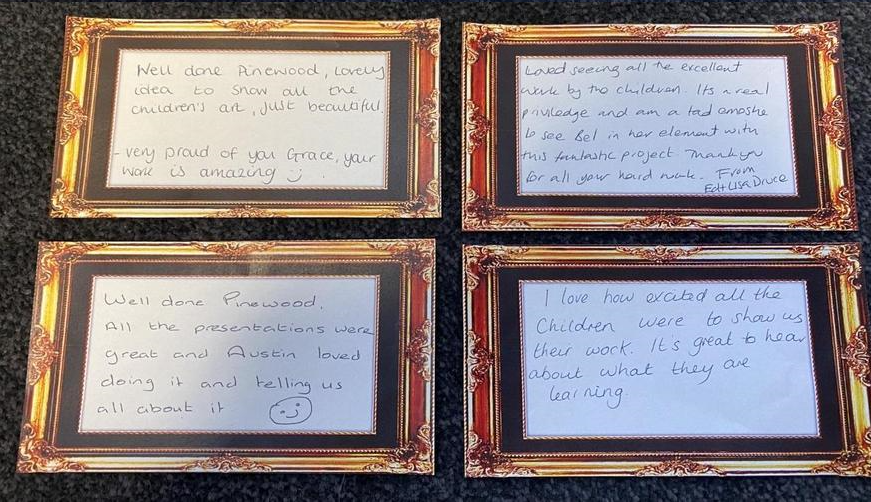 Well done Pinewood, Lovely
idea to show all the
children's art, just beautiful.
- very proud of you Grace, your
work is amazing
Loved seeing all the excellent
work by the children. Its a real
priviledge and am a tad
to see Bel in her element with
this fantastic project. Thank you
for all your hard work. From
Ed + Lisa Druce
Well done Pinewood.
All the presentations were
great and Austin loved
doing it and telling us
all about it
I love how excited all the
Children were to show us
their work. It's great to hear
about what they are
learning.